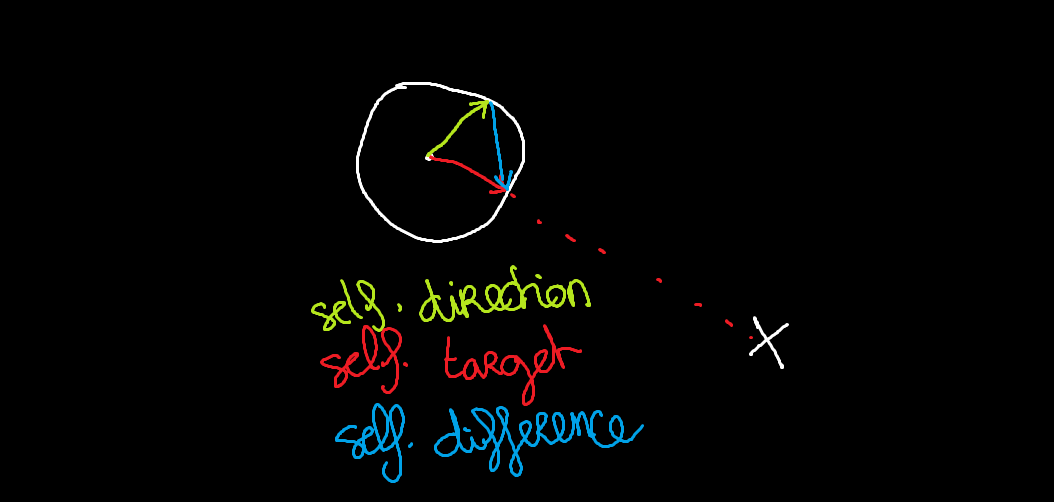 self. direction
self. target
self. difference